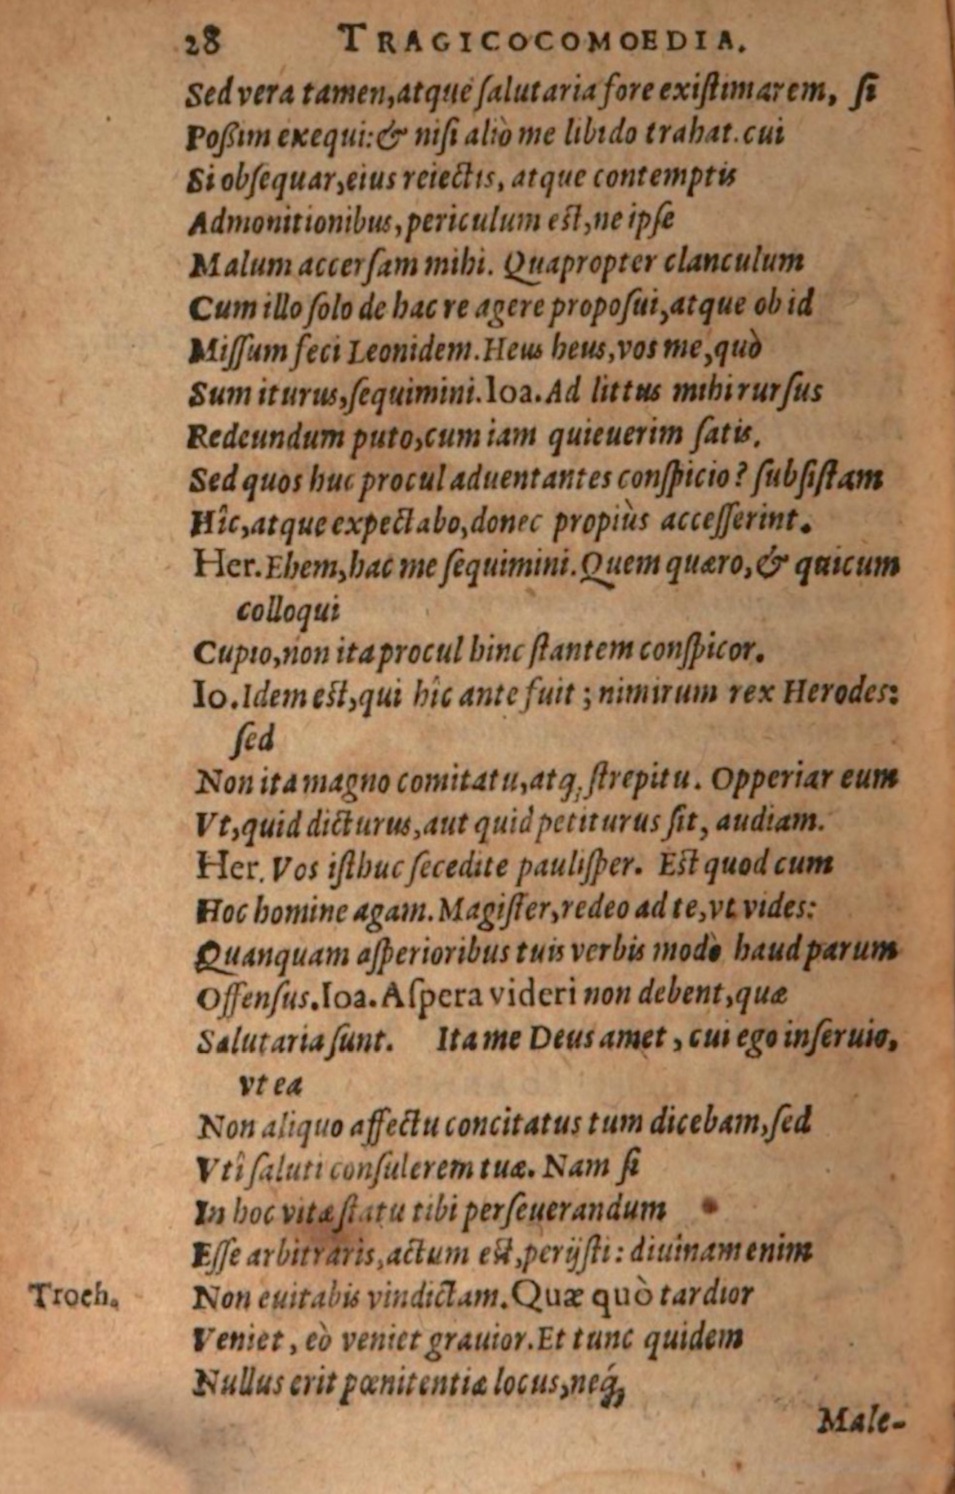 28 TRAGICOCOMOEDIA.
Sed vera tamen, atque ſalutaria fore exiſtimarem, ſi
Poßim exequi: & niſi aliò me libido trahat. cui
Si obſequar, eius reiectis, atque contemptis
Admonitionibus, periculum eſt, ne ipſe
Malum accerſam mihi. Quapropter clanculum
Cum illo ſolo de hac re agere propoſui, atque ob id
Miſſum feci Leonidem. Heus heus, vos me, quò
Sum iturus, ſequimini. Ioa. Ad littus mihi rurſus
Redeundum puto, cum iam quieuerim ſatis.
Sed quos huc procul aduentantes conſpicio? ſubſiſtam
Hîc, atque expectabo, donec propiùs acceſſerint.
Her. Ehem, hac me ſequimini. Quem quæro, & quicum
colloqui
Cupio, non ita procul hinc ſtantem conſpicor.
Io. Idem eſt, qui hîc ante fuit; nimirum rex Herodes:
ſed
Non ita magno comitatu, atq; ſtrepitu. Opperiar eum
Vt, quid dicturus, aut quid petiturus ſit, audiam.
Her. Vos iſthuc ſecedite pauliſper. Eſt quod cum
Hoc homine agam. Magiſter, redeo ad te, vt vides:
Quanquam aſperioribus tuis verbis modò haud parum
Offenſus. Ioa. Aſpera videri non debent, quæ
Salutaria ſunt. Ita me Deus amet, cui ego inſeruio,
vt ea
Non aliquo affectu concitatus tum dicebam, ſed
Vtî ſaluti conſulerem tuæ. Nam ſi
In hoc vitæ ſtatu tibi perſeuerandum
Eſſe arbitraris, actum eſt, perijſti: diuinam enim
Troch. Non euitabis vindictam. Quæ quò tardior
Veniet, eò veniet grauior. Et tunc quidem
Nullus erit pœnitentiæ locus, neq́;
Male-